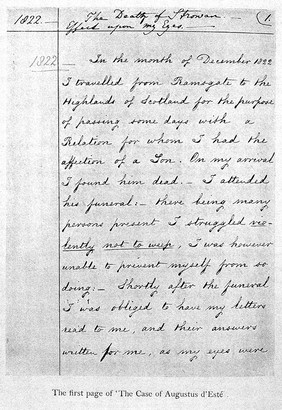 1822.— The Death of Strowan. 1.
Effect upon my Eyes.—
1822 — In the month of December 1822
I travelled from Ramsgate to the
Highlands of Scotland for the purpose
of passing some days with a
Relation for whom I had the
affection of a Son. On my arrival
I found him dead.— I attended
his funeral:— there being many
persons present I struggled vio-
lently not to weep, I was however
unable to prevent myself from so
doing:— Shortly after the funeral
I was obliged to have my letters
read to me, and their answers
written for me, as my eyes were
The first page of 'The Case of Augustus d'Esté